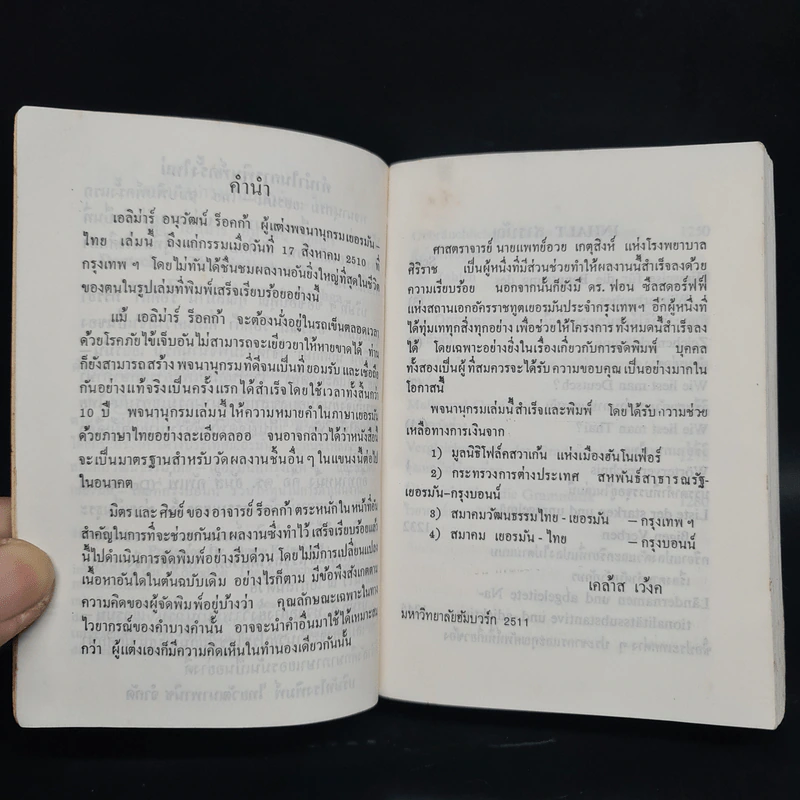 คำนำ
เอลิม่าร์ อนุวัฒน์ ร็อคก้า ผู้แต่งพจนานุกรมเยอรมัน–
ไทย เล่มนี้ ถึงแก่กรรมเมื่อวันที่ 17 สิงหาคม 2510 ที่
กรุงเทพ ฯ โดยไม่ทันได้ชื่นชมผลงานอันยิ่งใหญ่ที่สุดในชีวิต
ของตนในรูปเล่มที่พิมพ์เสร็จเรียบร้อยอย่างนี้
แม้ เอลิม่าร์ ร็อคก้า จะต้องนั่งอยู่ในรถเข็นตลอดเวลา
ด้วยโรคภัยไข้เจ็บอันไม่สามารถจะเยียวยาให้หายขาดได้ ท่าน
ก็ยังสามารถสร้างพจนานุกรมที่ดีจนเป็นที่ยอมรับและเชื่อถือ
กันอย่างแท้จริงเป็นครั้งแรกได้สำเร็จโดยใช้เวลาทั้งสิ้นกว่า
10 ปี พจนานุกรมเล่มนี้ให้ความหมายคำในภาษาเยอรมัน
ด้วยภาษาไทยอย่างละเอียดลออ จนอาจกล่าวได้ว่าหนังสือนี้
จะเป็นมาตรฐานสำหรับวัดผลงานชิ้นอื่น ๆ ในแขนงนี้ต่อไป
ในอนาคต
มิตรและศิษย์ของ อาจารย์ ร็อคก้า ตระหนักในหน้าที่อัน
สำคัญในการที่จะช่วยกันนำผลงานซึ่งทำไว้เสร็จเรียบร้อยแล้ว
นี้ไปดำเนินการจัดพิมพ์อย่างรีบด่วน โดยไม่มีการเปลี่ยนแปลง
เนื้อหาอันใดในต้นฉบับเดิม อย่างไรก็ตาม มีข้อพึงสังเกตตาม
ความคิดของผู้จัดพิมพ์อยู่บ้างว่า คุณลักษณะเฉพาะในทาง
ไวยากรณ์ของคำบางคำนั้น อาจจะนำคำอื่นมาใช้ได้เหมาะสม
กว่า ผู้แต่งเองก็มีความคิดเห็นในทำนองเดียวกันนั้น
ศาสตราจารย์ นายแพทย์อวย เกตุสิงห์ แห่งโรงพยาบาล
ศิริราช เป็นผู้หนึ่งที่มีส่วนช่วยทำให้ผลงานนี้สำเร็จลงด้วย
ความเรียบร้อย นอกจากนั้นก็ยังมี ดร. ฟอน ซีลสดอร์ฟฟ์
แห่งสถานเอกอัครราชทูตเยอรมันประจำกรุงเทพฯ อีกผู้หนึ่งที่
ได้ทุ่มเททุกสิ่งทุกอย่าง เพื่อช่วยให้โครงการทั้งหมดนี้สำเร็จลง
ได้ โดยเฉพาะอย่างยิ่งในเรื่องเกี่ยวกับการจัดพิมพ์ บุคคล
ทั้งสองเป็นผู้ที่สมควรจะได้รับความขอบคุณเป็นอย่างมากใน
โอกาสนี้
พจนานุกรมเล่มนี้สำเร็จและพิมพ์ โดยได้รับความช่วย
เหลือทางการเงินจาก
1) มูลนิธิโฟล์คสวาเก้น แห่งเมืองฮันโนเฟ่อร์
2) กระทรวงการต่างประเทศ สหพันธ์สาธารณรัฐ-
เยอรมัน–กรุงบอนน์
3) สมาคมวัฒนธรรมไทย - เยอรมัน – กรุงเทพ ฯ
4) สมาคม เยอรมัน - ไทย – กรุงบอนน์
เคล้าส เว้งค
มหาวิทยาลัยฮัมบวร์ก 2511